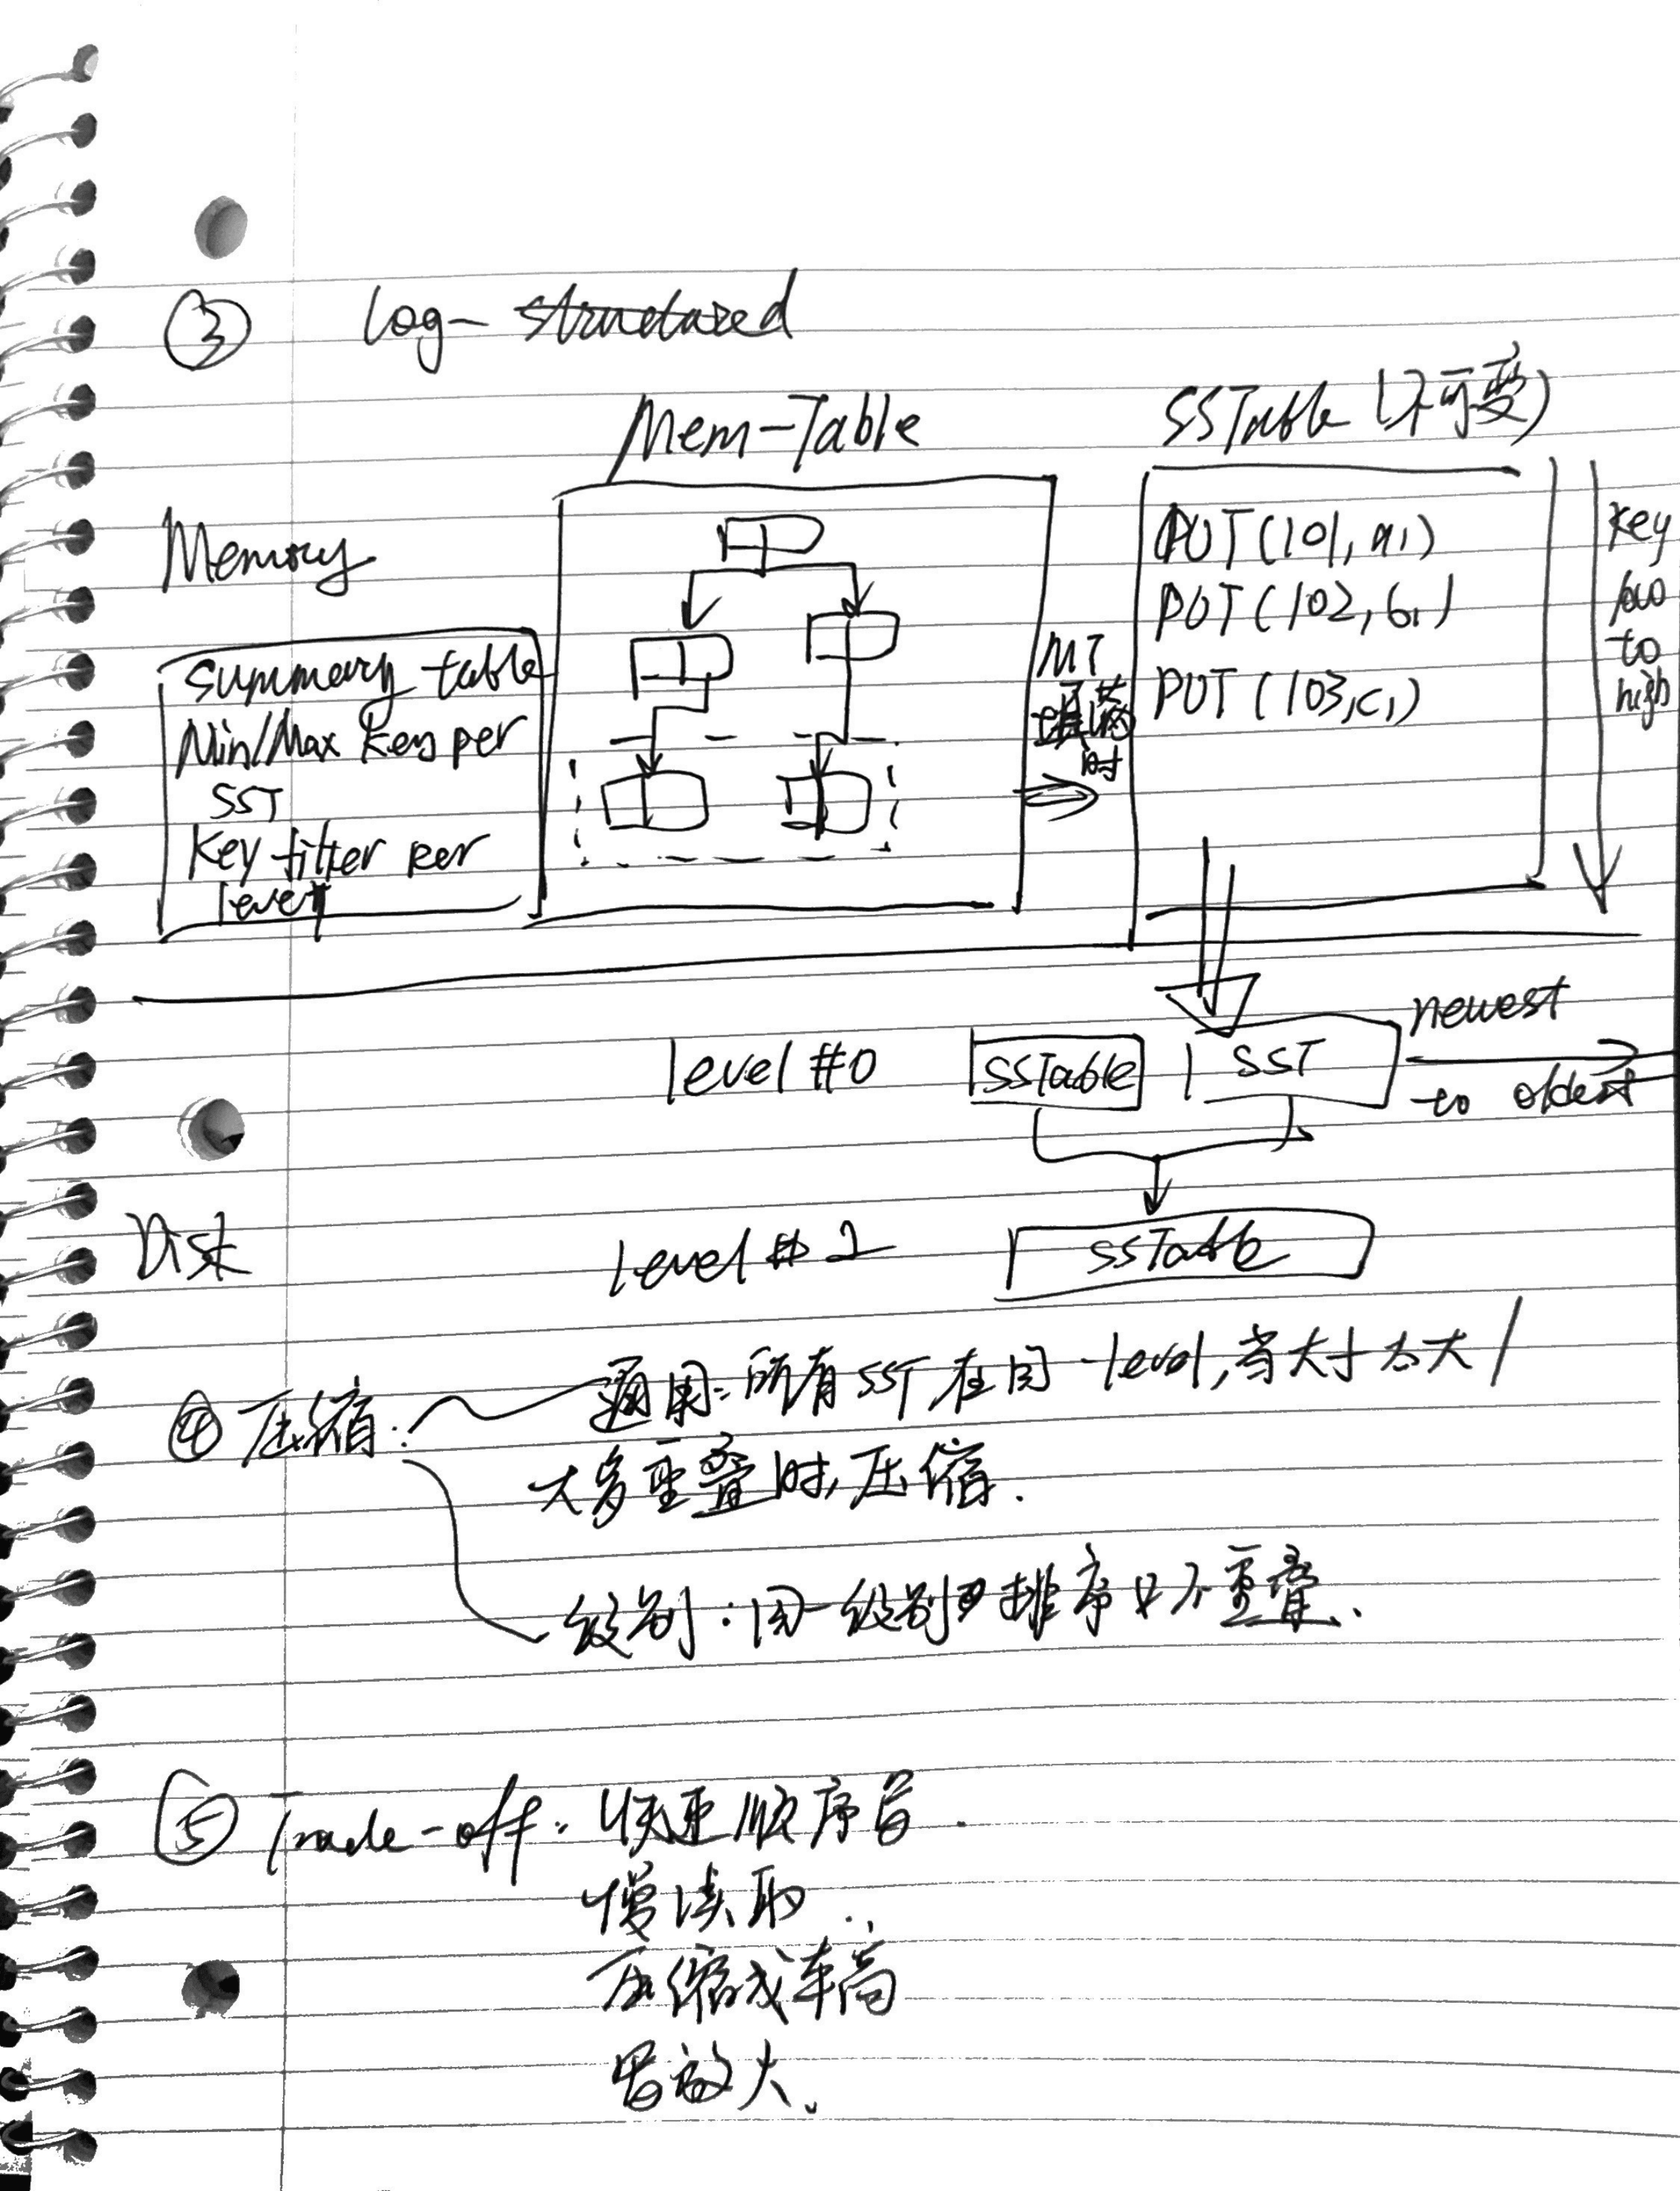 ③ log-structured
Mem-Table
SSTable (不可变)
Memory
summary table
Min/Max key per
SST
Key filter per
level
MT
填满
时
PUT(101, a₁)
PUT(102, b₁)
PUT(103, c₁)
key
low
to
high
level #0
SSTable
SST
newest
to oldest
Disk
level #
SSTable
④ 压缩:
通用: 所有SST在同一level, 当大于太大/
太多重叠时, 压缩.
级别: 同一级别 排序且不重叠.
⑤ Trade-off: 快速顺序写.
慢读取.
压缩成本高
写放大.